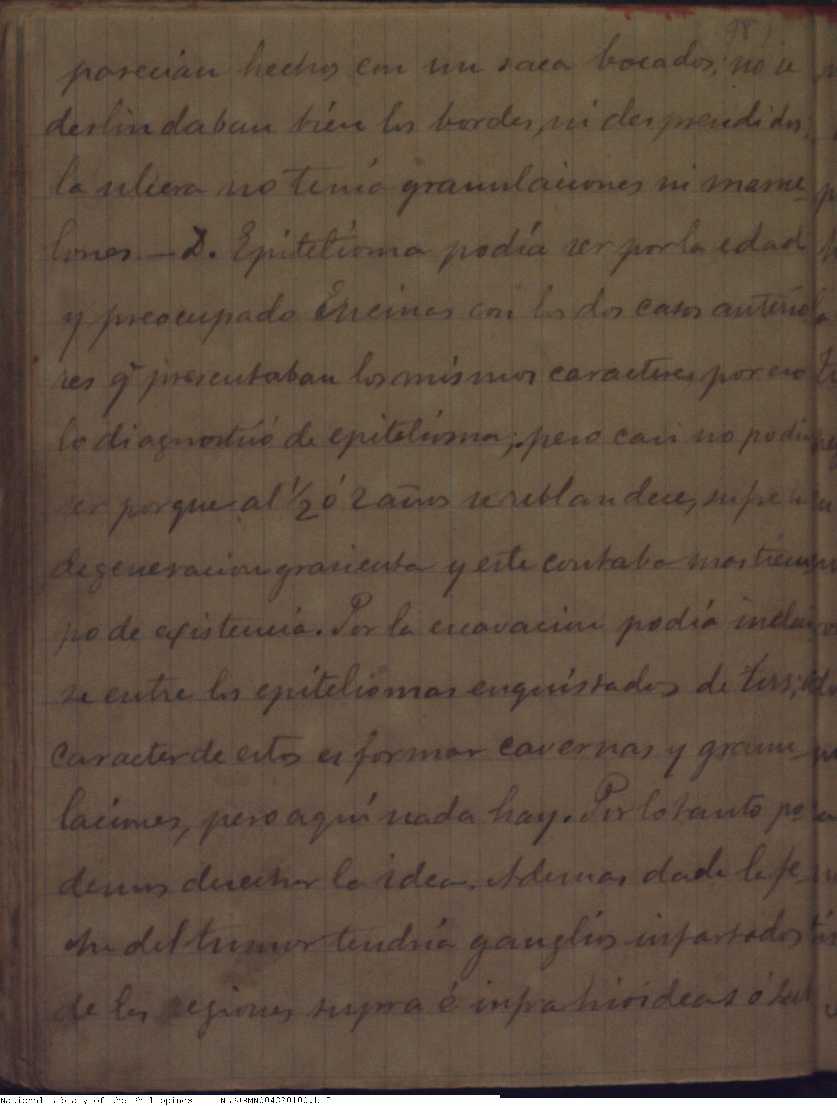 parecian hechos con un saca bocados; no se
deslindaban bién los bordes, ni desprendidos,
la ulcera no tenía granulaciones ni mame-
lones. — D. Epitelioma podía ser por la edad
y preocupado Encinas con los dos casos anterio
res q. presentaban los mismos caracteres por eso
lo diagnostíco de epitelioma; pero casi no podia
ser porque al ½ ó 2 años se reblandece, sufre la
degeneracion grasienta y este contaba mas tiem
po de existencia. Por la excavacion podía incluir
se entre los epiteliomas enquistados de
caracter de estos es formar cavernas y granu-
laciones, pero aquí nada hay. Por lo tanto po-
demos desechar la idea. Ademas dada la fe-
cha del tumor tendría ganglios infartados
de las regiones supra é infra hioideas ó sub
National Library of the Philippines